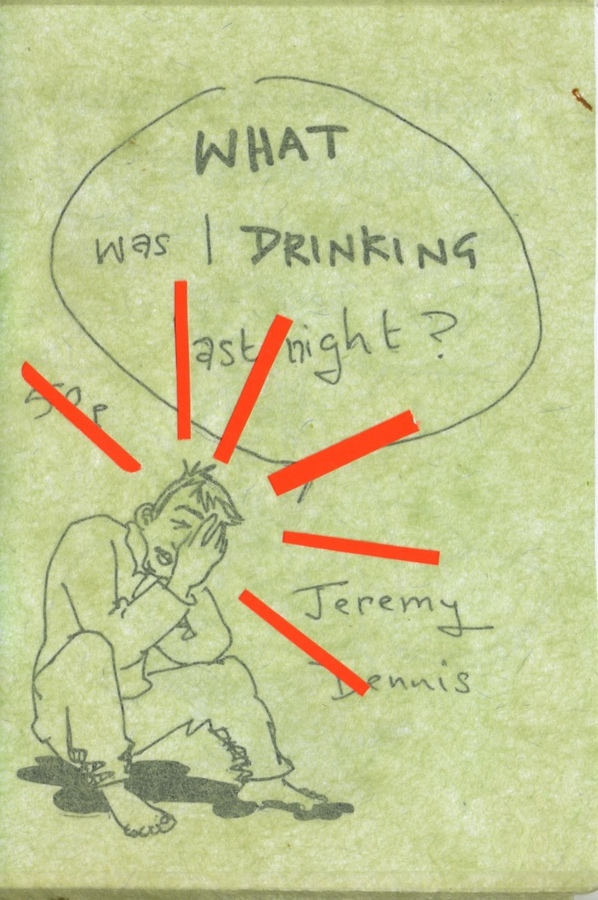 WHAT
was I DRINKING
last night?
50p
Jeremy
Dennis